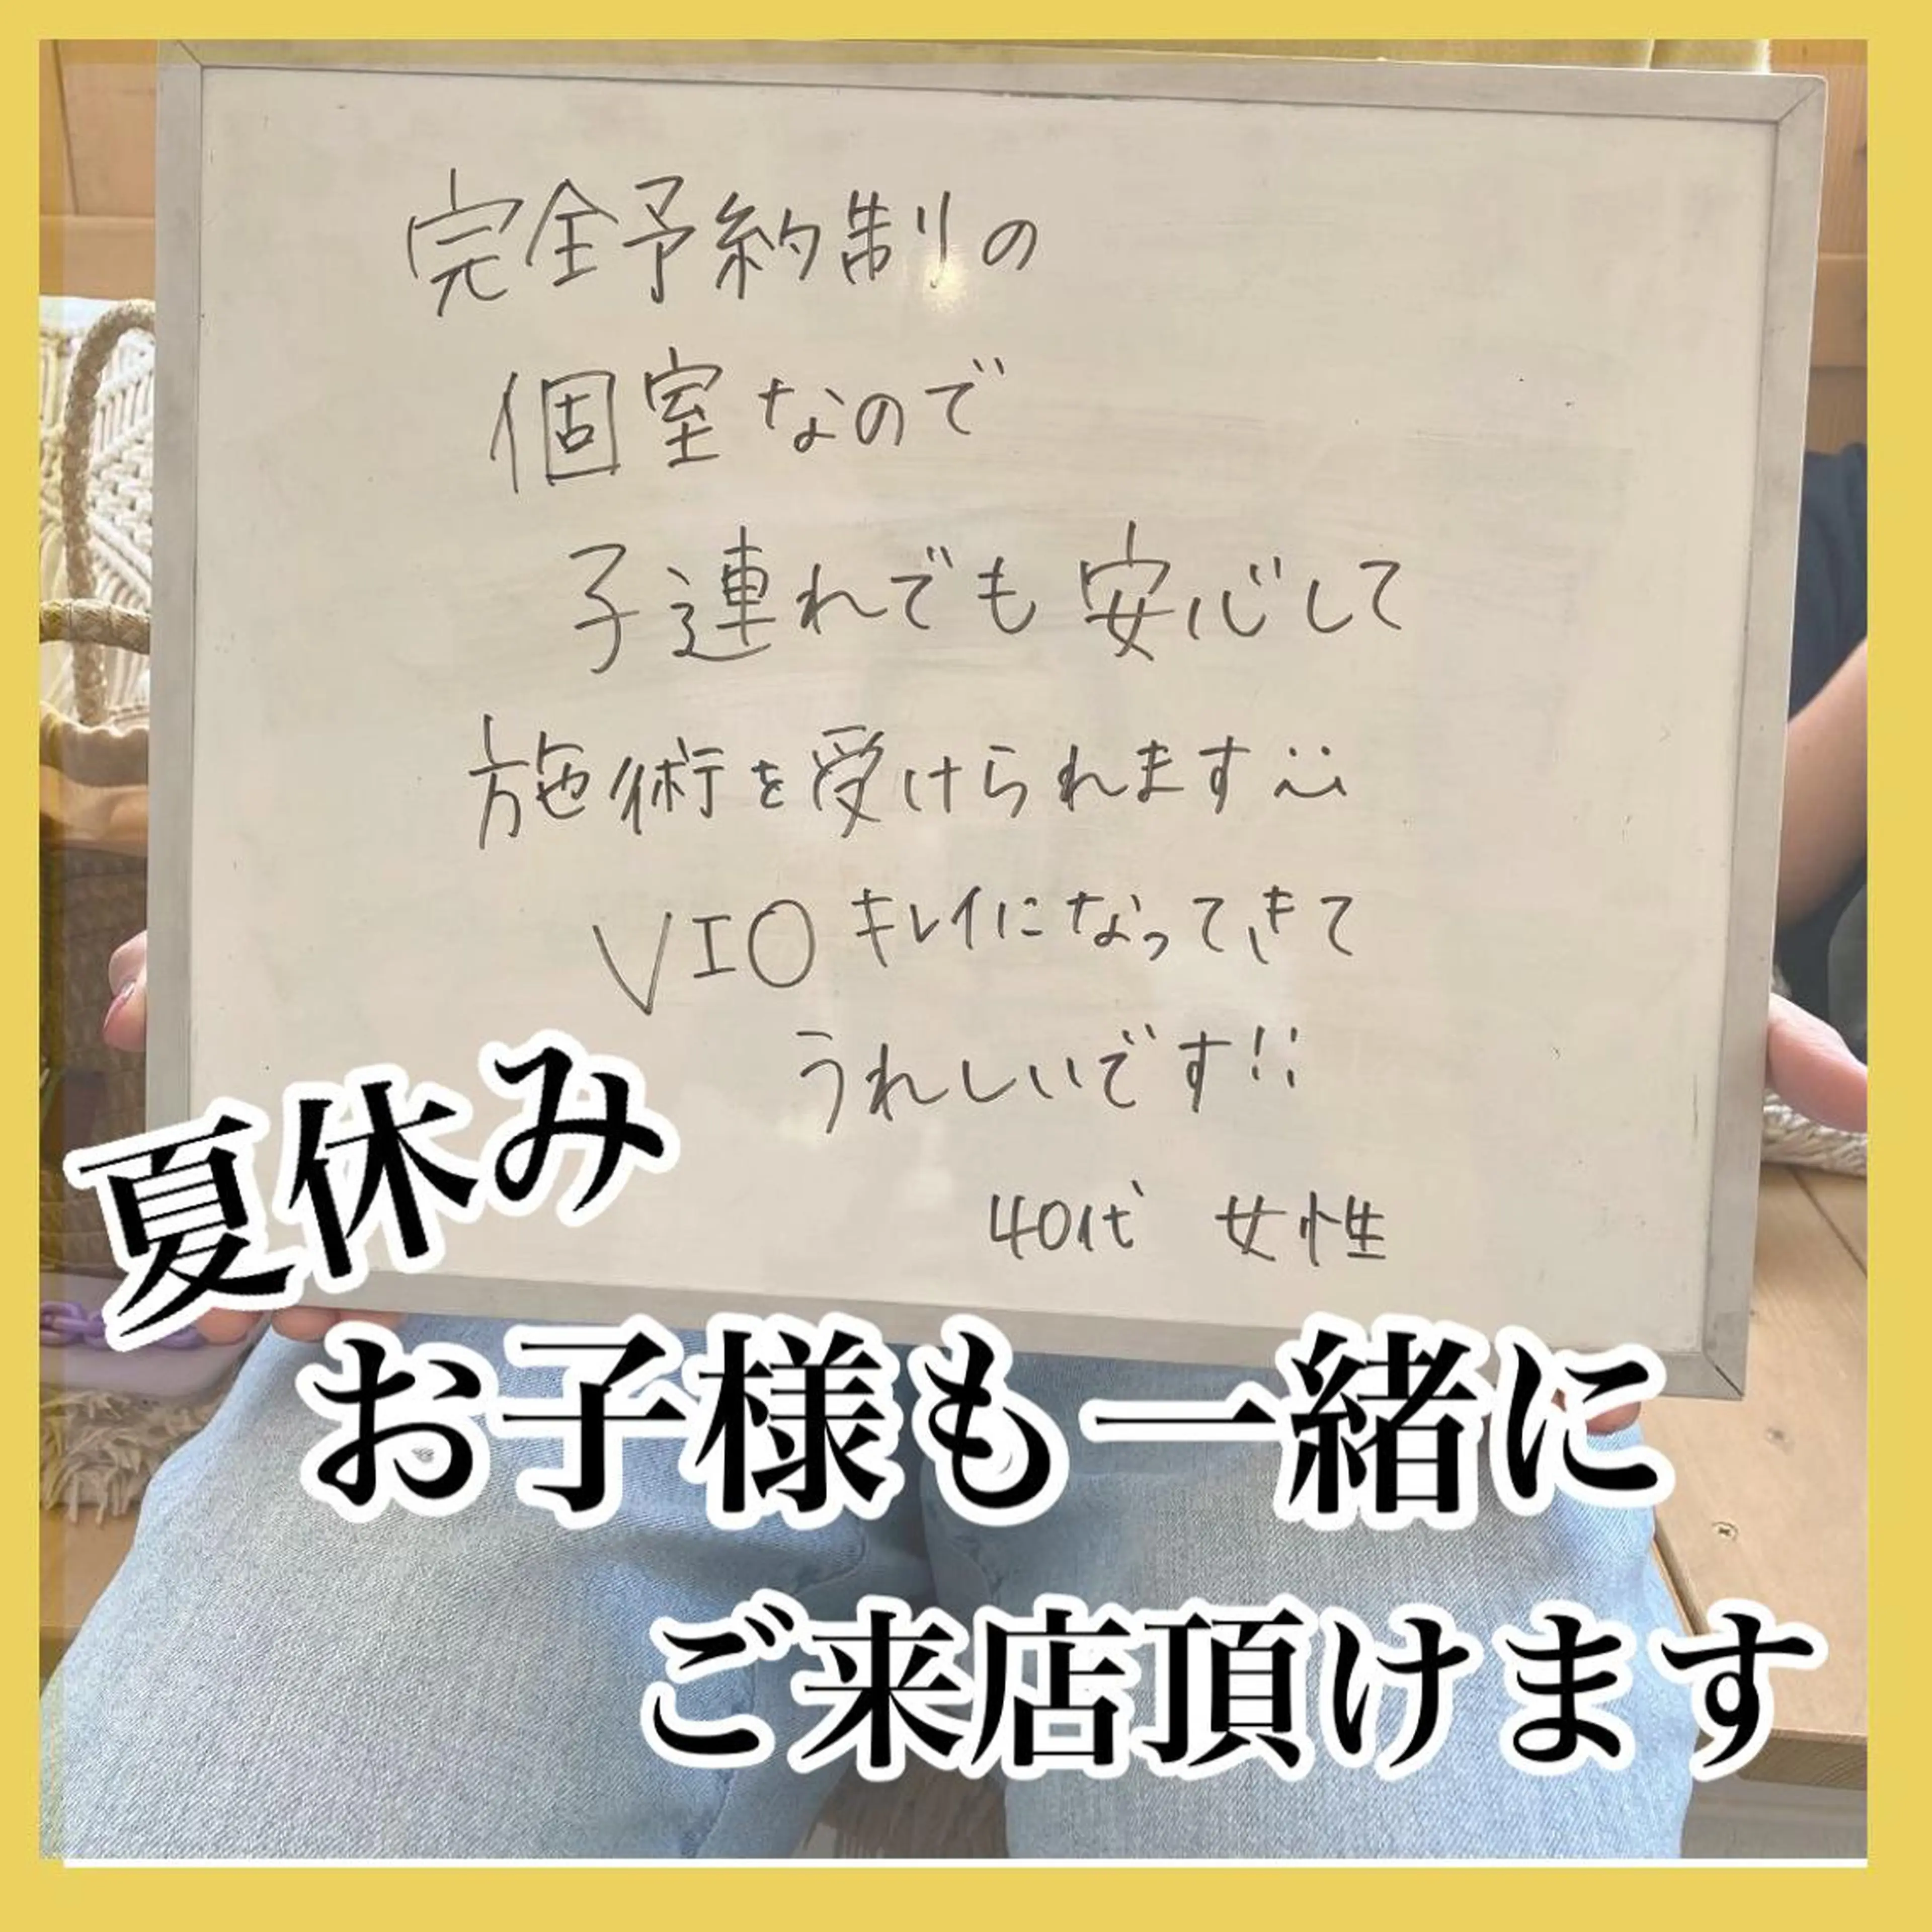 完全予約制の
個室なので
子連れでも安心して
施術を受けられます
VIOキレイになってきて
うれしいです!!
40代 女性
夏休み
お子様も一緒に
ご来店頂けます